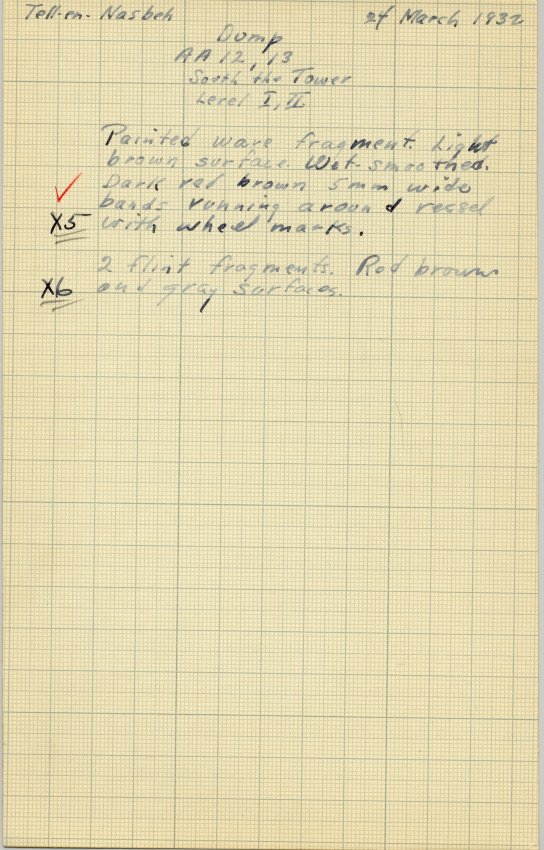 Tell-en-Nasbeh 24 March 1932
Dump
AA 12, 13
South the Tower
Level I, II
Painted ware fragment. Light
brown surface. Wet-smoothed.
Dark red brown 5mm wide
bands running around vessel
X5 with wheel marks.
2 flint fragments. Red brown
X6 and gray surfaces.